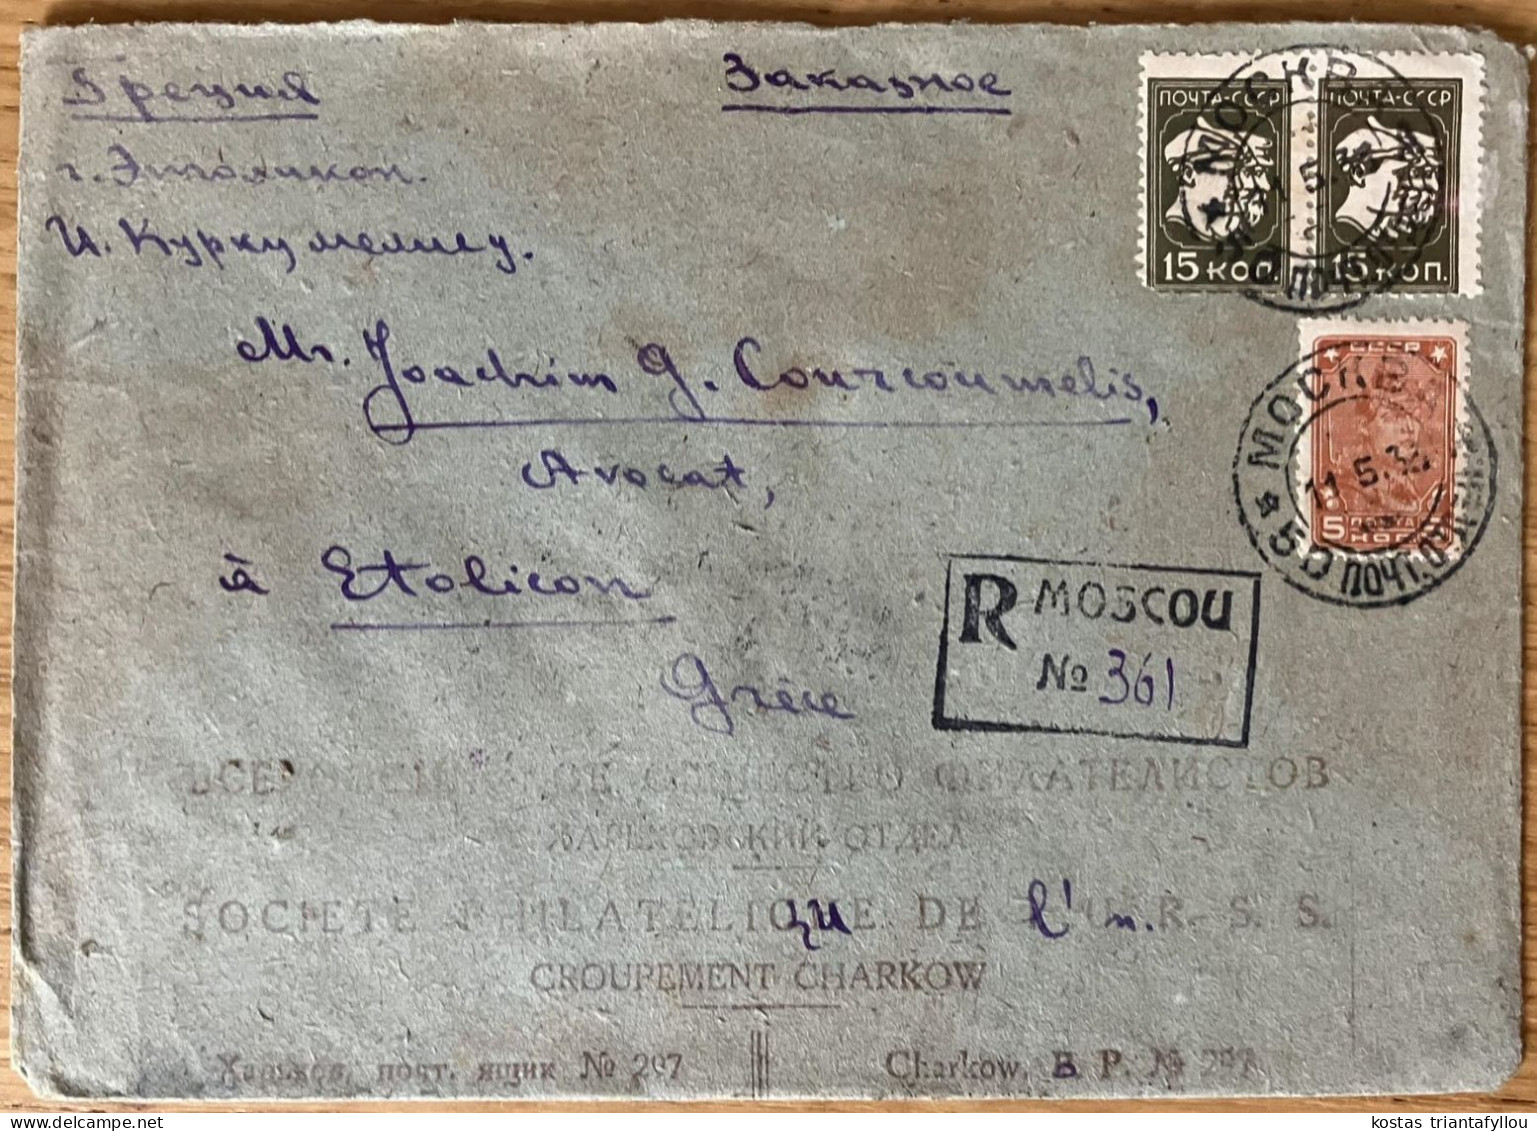 Греция
Заказное
г. Этоликон.
И. Куркумелису.
ПОЧТА-СССР
15 КОП.
ПОЧТА-СССР
15 КОП.
МОСКВА
СССР
5 КОП.
МОСКВА
11 5.
50 ПОЧТ.ОТД
Mr. Joachim G. Courcoumelis,
Avocat,
à Etolicon
Grèce
R MOSCOU
№ 361
ВСЕРОССИЙСКОЕ ОБЩЕСТВО ФИЛАТЕЛИСТОВ
ХАРЬКОВСКИЙ ОТДЕЛ
SOCIETE PHILATELIQUE DE l'U. R. S. S.
GROUPEMENT CHARKOW
Харьков, почт. ящик № 297
Charkow, B. P. № 297
kostas triantafyllou